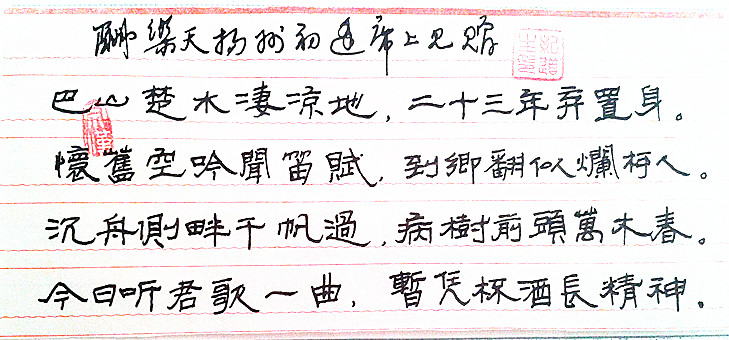 酬樂天扬州初逢席上见赠
巴山楚水淒涼地，二十三年弃置身。
懷舊空吟聞笛賦，到鄉翻似爛柯人。
沉舟側畔千帆過，病樹前頭萬木春。
今日听君歌一曲，暫凭杯酒長精神。